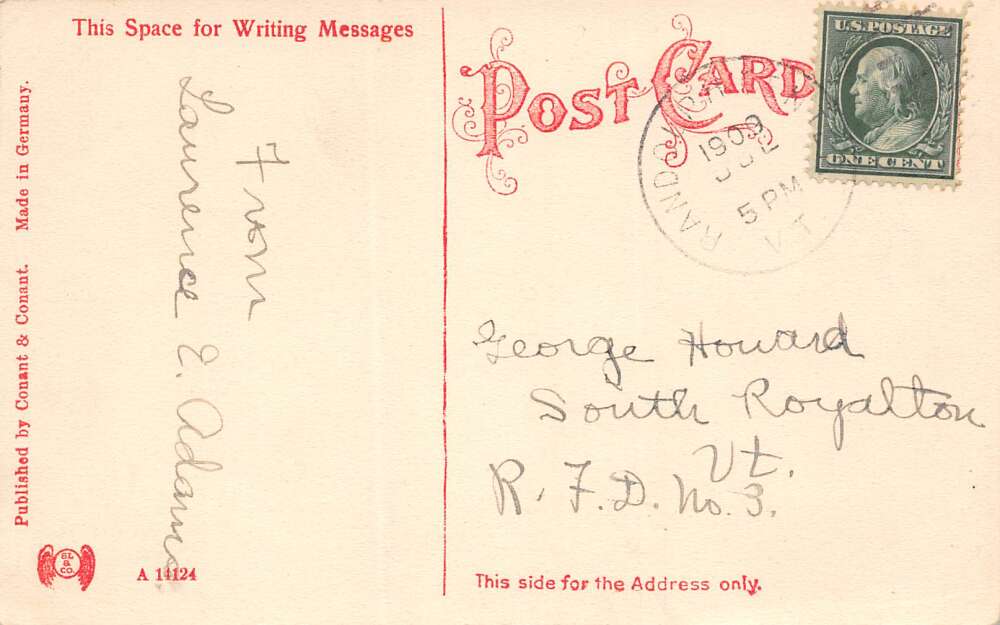 This Space for Writing Messages
From
Laurence E. Adams
Published by Conant & Conant. Made in Germany.
SL
& CO.
A 14124
POST CARD
U.S. POSTAGE
ONE CENT
RANDOLPH
1909
5 PM
VT.
George Howard
South Royalton
Vt.
R. F. D. No. 3.
This side for the Address only.